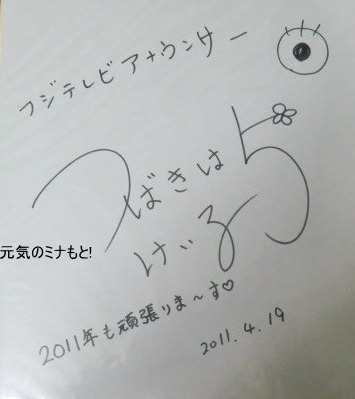 フジテレビアナウンサー
つばきはら
けいこ
元気のミナもと!
2011年も頑張りま〜す♡
2011.4.19